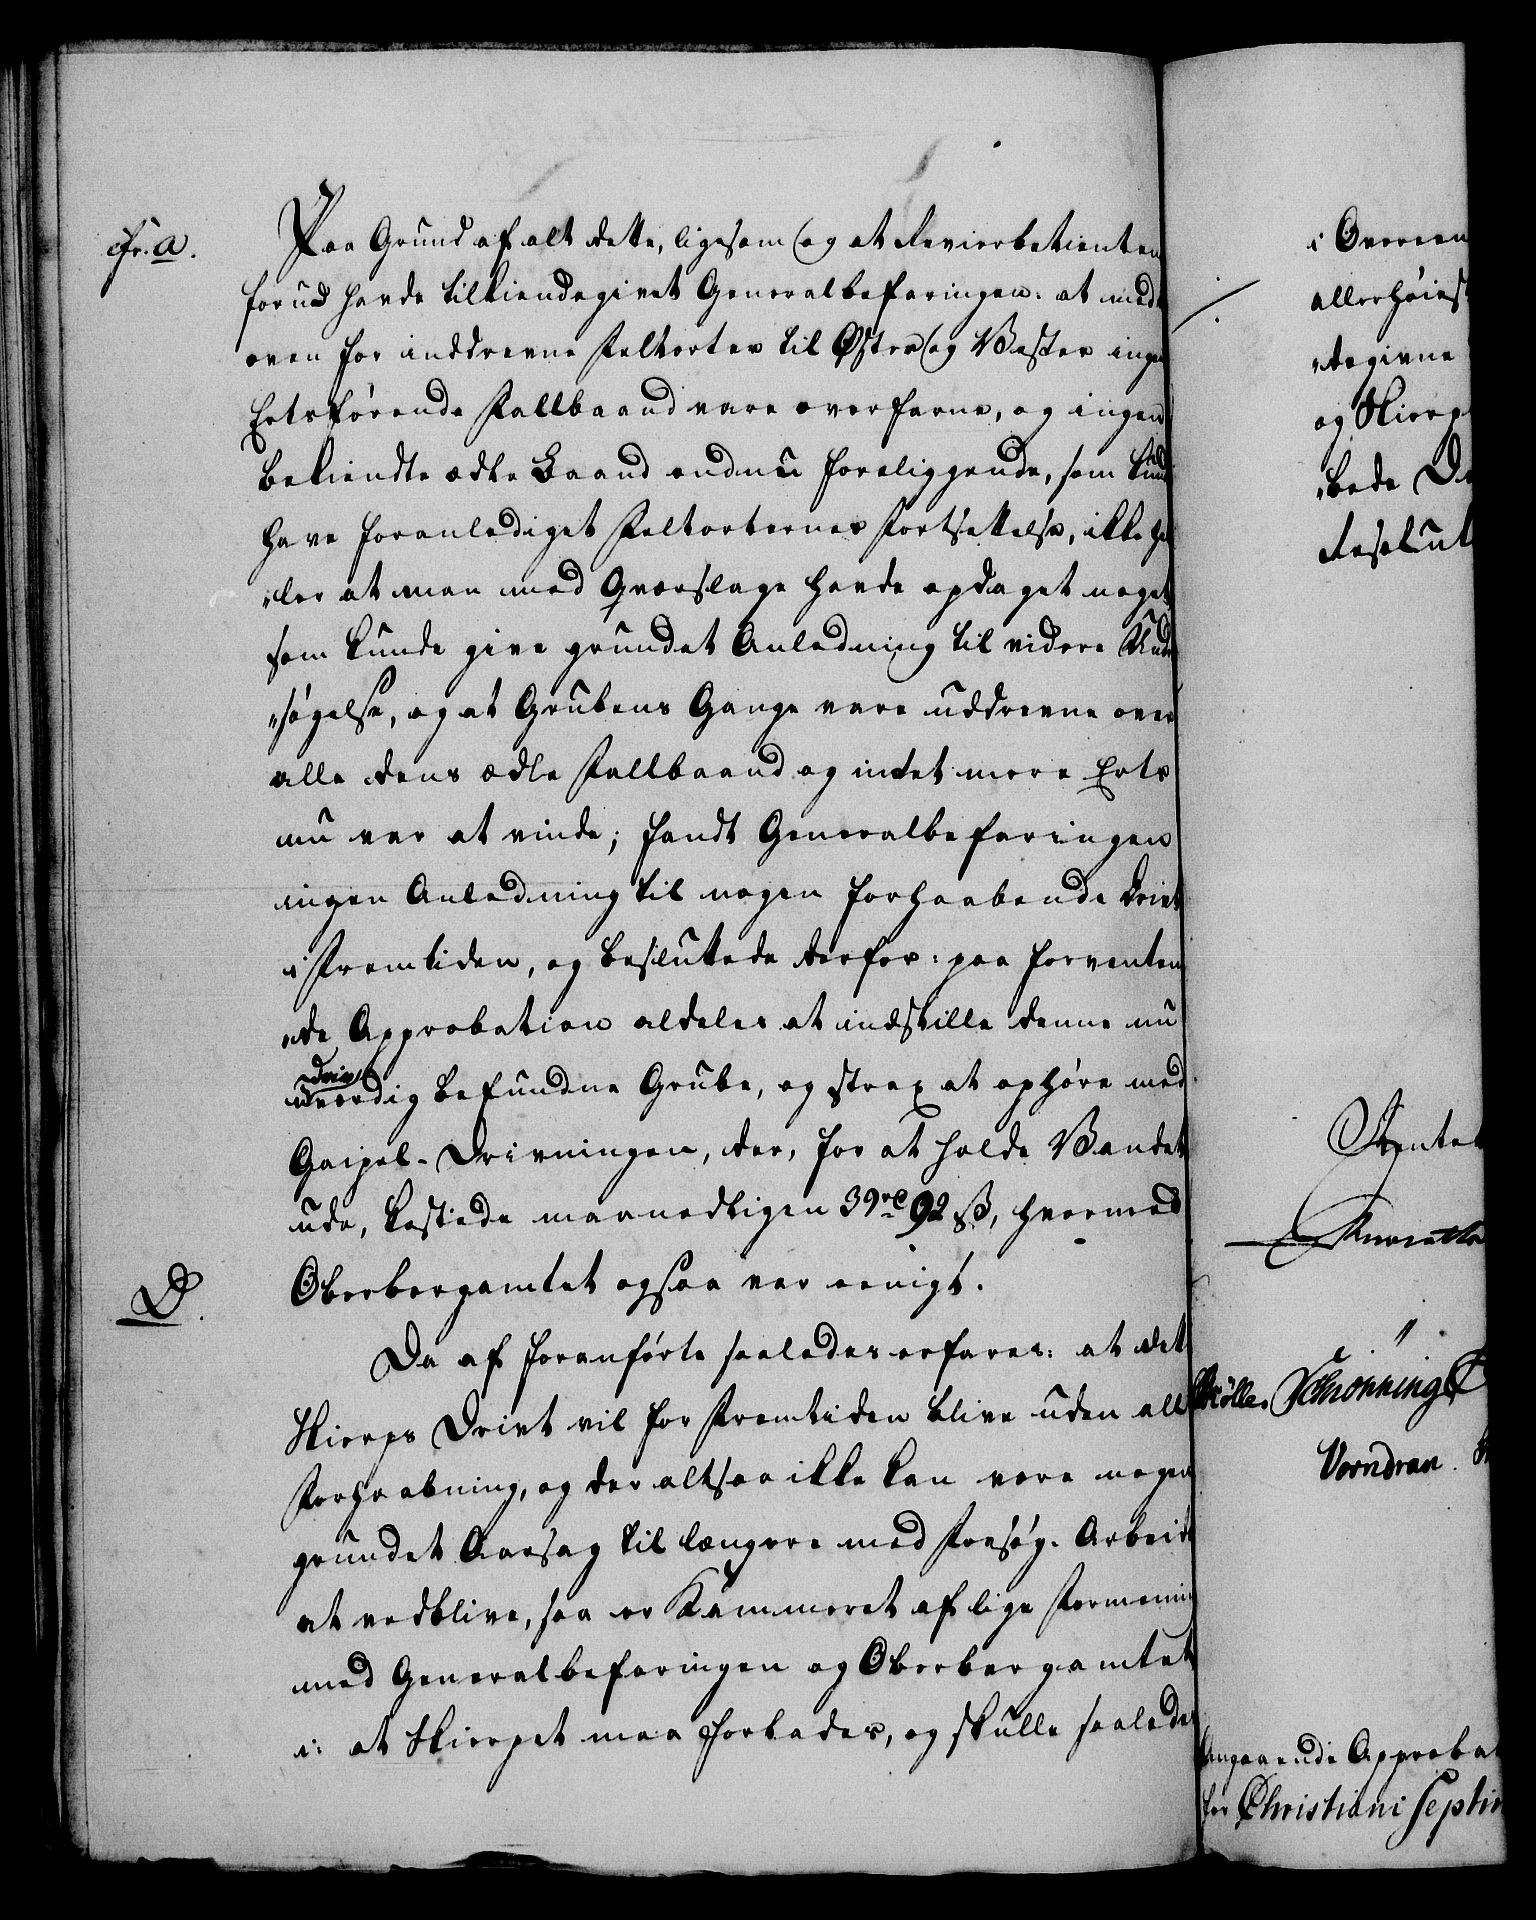 cfr. a.
Paa Grund af alt dette, ligesom (og at Revierbetienten
forud havde tilkiendegivet Generalbefaringen: at med
oven for inddrevne Feltorter til Øster (og Vester ingen
Ertsførende Fallbaand vare overfarne, og ingen
bekiendte ædle Baand endnu foreliggende, som kunde
have foranlediget Feltorternes Fortsættelse, ikke hel
„ler at man med Qværslage havde opdaget noget,
som kunde give grundet Anledning til videre Unde
„søgelse, og at Grubens Gange vare uddrevne over
alle dens ædle Fallbaand og intet mere Erts
nu var at vinde; fandt Generalbefaringen
ingen Anledning til nogen forhaabende Drivt
i Fremtiden, og besluttede derfor: paa forventen
„de Approbation aldeles at indstille denne nu
driv
uværdig befundne Grube, og strax at ophøre med
Gaipel-Drivningen, der, for at holde Vandet
ude, kostede maanedtligen 39 rd 92 ß, hvormed
Oberbergamtet ogsaa var eenigt.
D.
Da af foranførte saaledes erfares: at det
Skierps Drivt vil for Fremtiden blive uden all
Forhaabning, og der altsaa ikke kan være nogen
grundet Aarsag til længere med Forsøg-Arbeide
at vedblive, saa er Kammeret af lige Formening
med Generalbefaringen og Oberbergamtet
i: at Skierpet maa forlades, og skulle saaledes
i Overeen
allerhøiest
„tegivne
og Skierp
„bede De
Resolut
Rentek
Møller Schrønning
Vorndran
Angaaende Approbat
for Christiani Septim